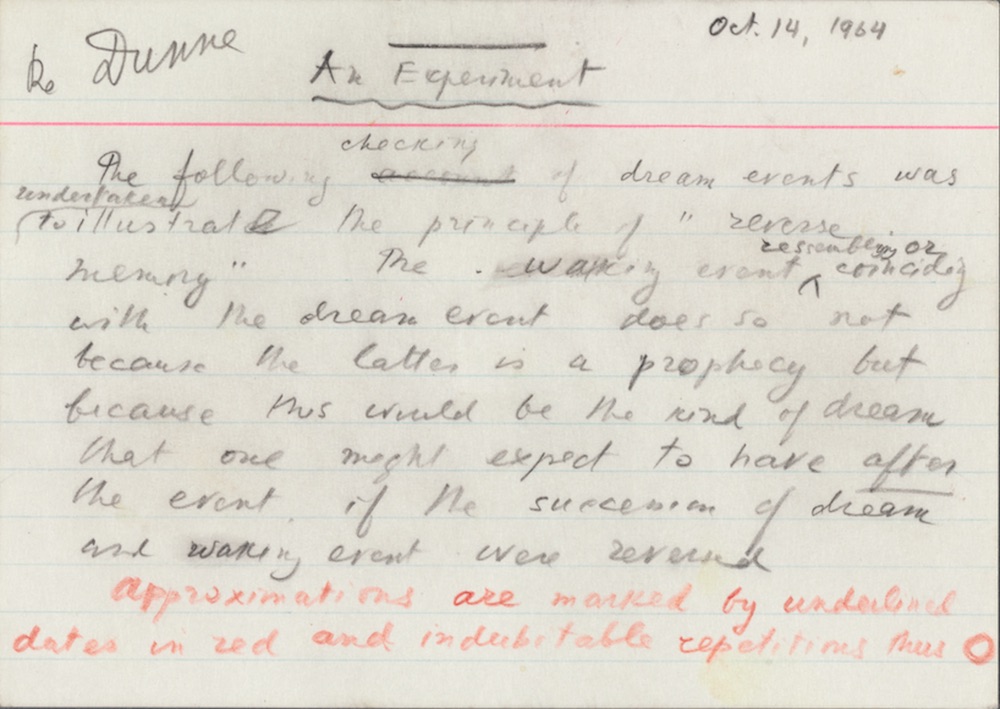 Re Dunne
Oct. 14, 1964
An Experiment
checking
The following account of dream events was
undertaken
to illustrate the principle of "reverse
ressembling or
memory" The waking event ^ coinciding
with the dream event does so not
because the latter is a prophecy but
because this would be the kind of dream
that one might expect to have after
the event, if the succession of dream
and waking event were reversed
Approximations are marked by underlined
dates in red and indubitable repetitions thus O